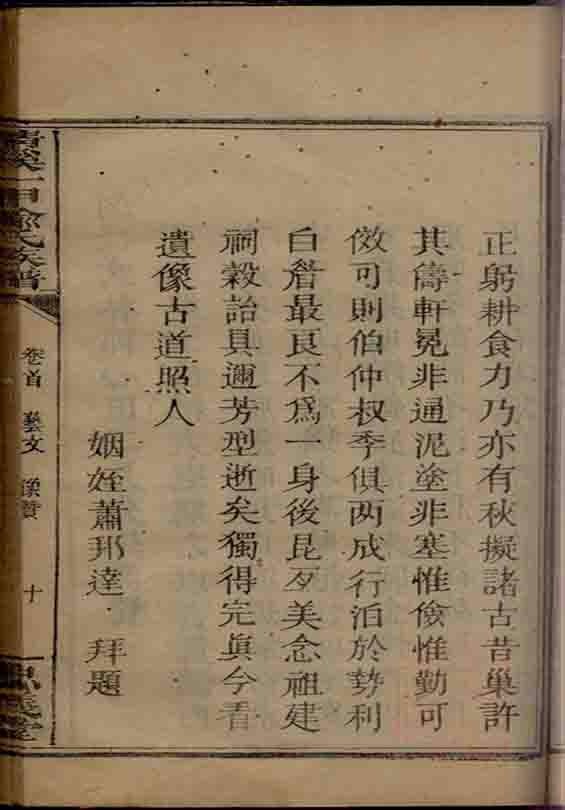 正躬耕食力乃亦有秋擬諸古昔巢許
其儔軒冕非通泥塗非塞惟儉惟勤可
傚可則伯仲叔季俱两成行泊於勢利
白睂最良不爲一身後昆歹美念祖建
祠穀詒具邇芳型逝矣獨得完真今看
遺像古道照人
姻姪蕭邦達 拜題
溪一甲俞氏族譜
卷首 藝文 像贊 十
堂